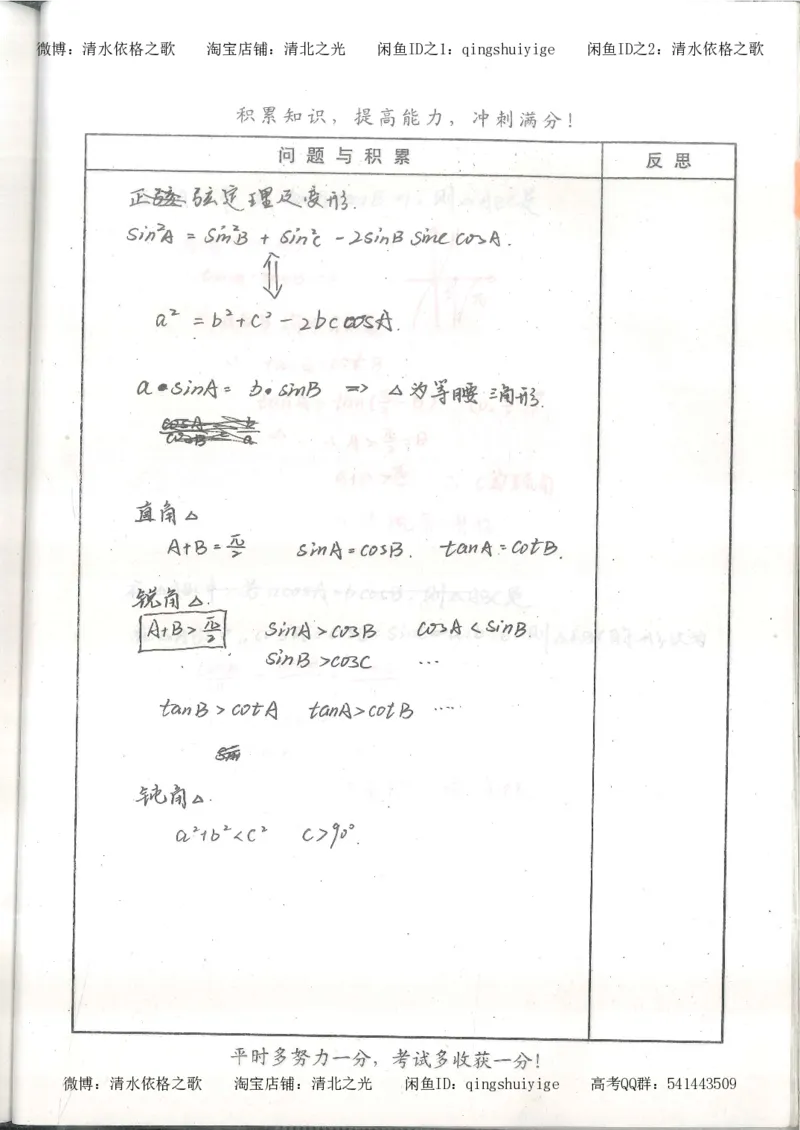 微博：清水依格之歌 淘宝店铺：清北之光 闲鱼ID之1：qingshuiyige 闲鱼ID之2：清水依格之歌
积累知识，提高能力，冲刺满分！
问题与积累 反思
正弦定理及变形.
sin²A = sin²B + sin²C - 2sinB sinC cosA.
⇕
a² = b²+c² - 2bc cosA.
a•sinA = b•sinB => △为等腰三角形.
直角△
A+B = π/2 sinA = cosB. tanA = cotB.
锐角△.
A+B > π/2 sinA > cosB cosA < sinB.
sinB > cosC ...
tanB > cotA tanA > cotB ....
钝角△.
a²+b² < c² C > 90°.
平时多努力一分，考试多收获一分！
微博：清水依格之歌 淘宝店铺：清北之光 闲鱼ID：qingshuiyige 高考QQ群：541443509